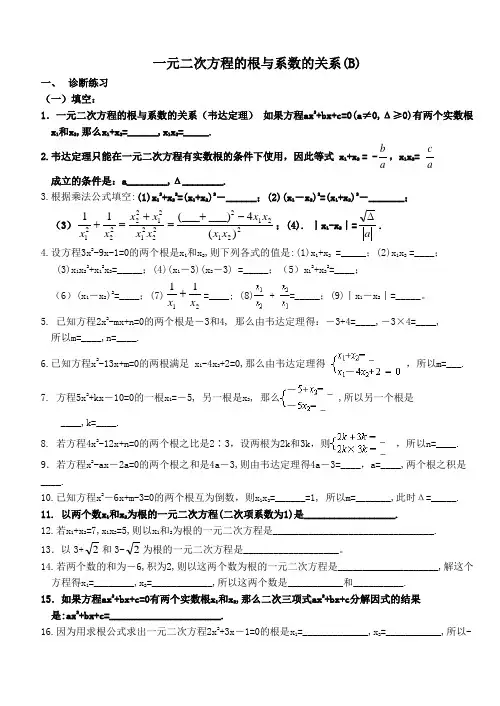 一元二次方程的根与系数的关系(B)
一、 诊断练习
（一）填空:
1．一元二次方程的根与系数的关系（韦达定理） 如果方程ax²+bx+c=0(a≠0,Δ≥0)有两个实数根
x₁和x₂,那么x₁+x₂=______,x₁x₂=_____.
2.韦达定理只能在一元二次方程有实数根的条件下使用，因此等式 x₁+x₂= -b/a，x₁x₂= c/a
成立的条件是：a________,Δ________.
3.根据乘法公式填空:(1)x₁²+x₂²=(x₁+x₂)²－______；(2)(x₁－x₂)²=(x₁+x₂)²－_______；
（3）1/x₁²+1/x₂²=(x₂²+x₁²)/(x₁²x₂²)=((___+___)²-4x₁x₂)/(x₁x₂)²；(4)．｜x₁-x₂｜=√Δ/a．
4.设方程3x²-9x-1=0的两个根是x₁和x₂,则下列各式的值是:(1)x₁+x₂ =_____；(2)x₁x₂=____；
(3)x₁x₂²+x₁²x₂=_____；(4)(x₁－3)(x₂－3) =_____；（5）x₁²+x₂²=____；
（6）(x₁－x₂)²=____；(7)1/x₁+1/x₂=____; (8)x₁/x₂ + x₂/x₁=_____；(9)｜x₁－x₂｜=_____。
5. 已知方程2x²-mx+n=0的两个根是－3和4, 那么由韦达定理得：－3+4=____,－3×4=____,
所以m=____,n=____.
6.已知方程x²-13x+m=0的两根满足 x₁-4x₂+2=0,那么由韦达定理得 {x₁+x₂=_ x₁-4x₂+2=0 ，所以m=___.
7. 方程5x²+kx－10=0的一根x₁=－5, 另一根是x₂, 那么{-5+x₂=_ -5x₂=_ ,所以另一个根是
____,k=____.
8. 若方程4x²-12x+n=0的两个根之比是2∶3，设两根为2k和3k，则{2k+3k=_ 2k×3k=_ ，所以n=____.
9．若方程x²-ax－2a=0的两个根之和是4a－3,则由韦达定理得4a－3=____, a=____,两个根之积是
____.
10.已知方程x²－6x+m-3=0的两个根互为倒数，则x₁x₂=______=1, 所以m=_______,此时Δ=_____.
11. 以两个数x₁和x₂为根的一元二次方程(二次项系数为1)是___________________.
12.若x₁+x₂=7,x₁x₂=5,则以x₁和x₂为根的一元二次方程是_________________________________.
13．以3+√2和3-√2为根的一元二次方程是___________________。
14.若两个数的和为－6,积为2,则以这两个数为根的一元二次方程是____________________,解这个
方程得x₁=________,x₂=____________,所以这两个数是___________和__________.
15．如果方程ax²+bx+c=0有两个实数根x₁和x₂,那么二次三项式ax²+bx+c分解因式的结果
是:ax²+bx+c=_______________________.
16.因为用求根公式求出一元二次方程2x²+3x－1=0的根是x₁=_____________,x₂=___________,所以-